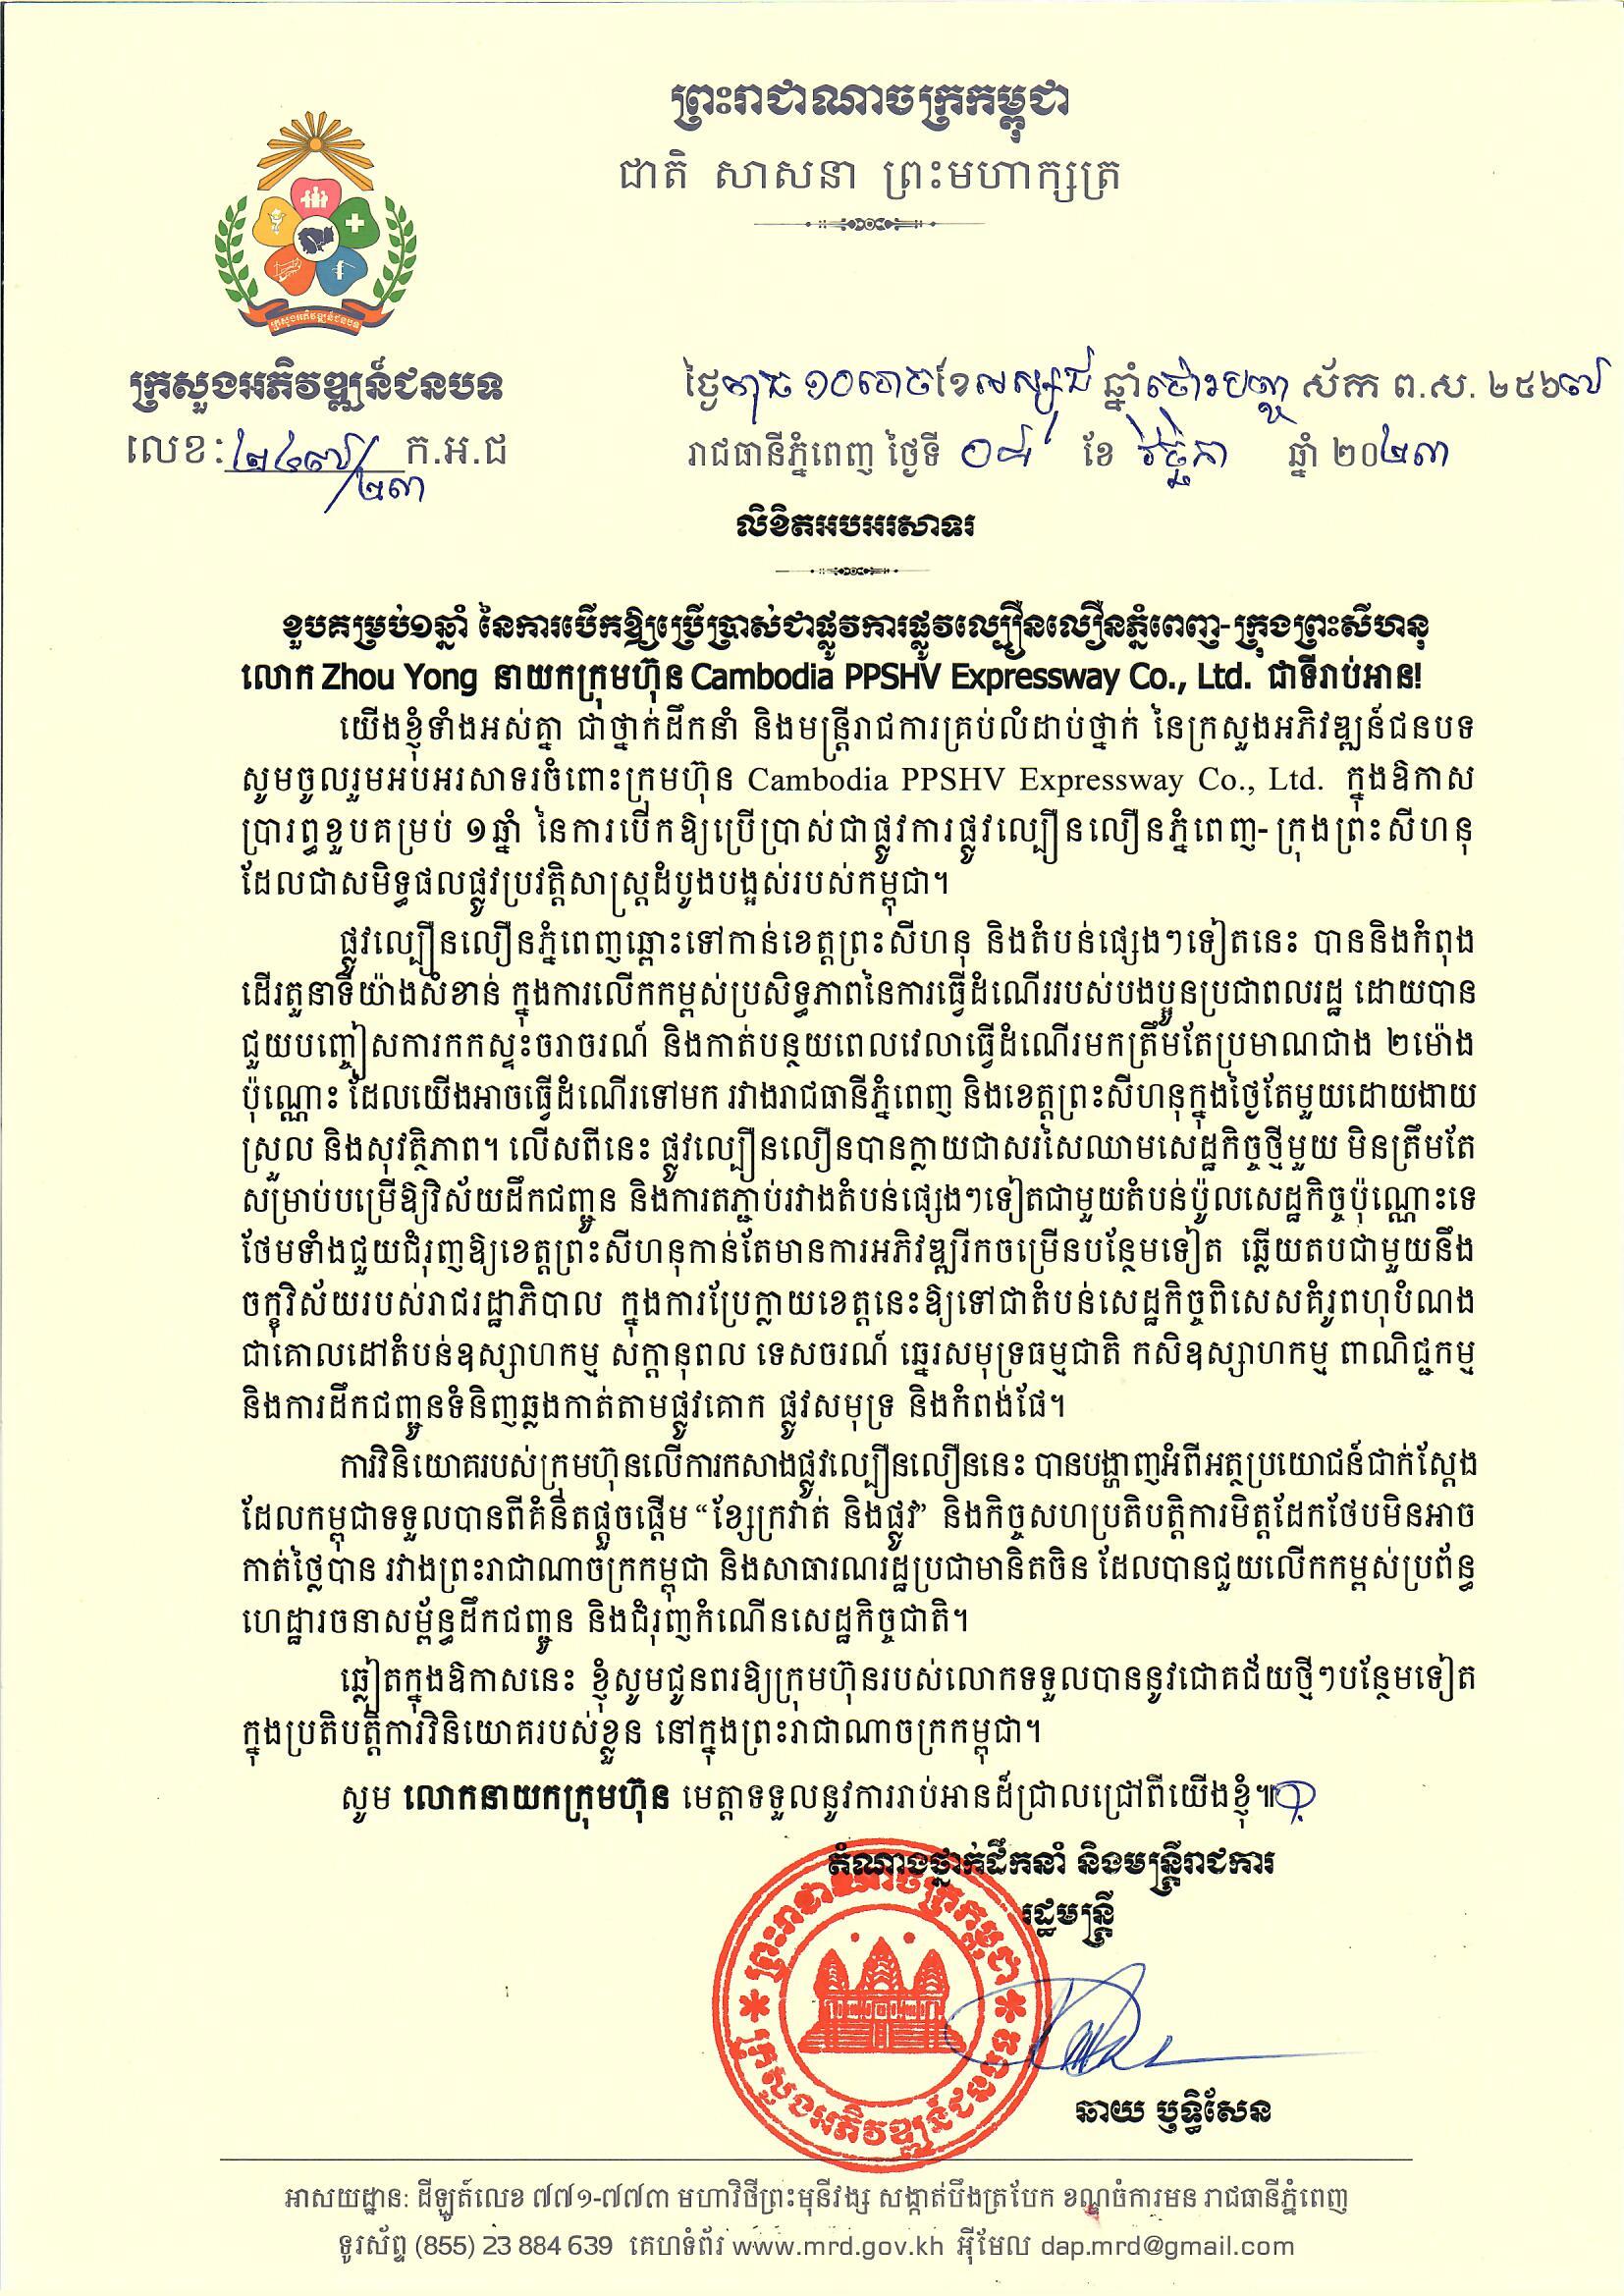 ព្រះរាជាណាចក្រកម្ពុជា
ជាតិ សាសនា ព្រះមហាក្សត្រ
ក្រសួងអភិវឌ្ឍន៍ជនបទ
ក្រសួងអភិវឌ្ឍន៍ជនបទ
ថ្ងៃពុធ ១០រោច ខែអស្សុជ ឆ្នាំថោះ បញ្ចស័ក ព.ស. ២៥៦៧
លេខ: ២៤៧/២៣ ក.អ.ជ
រាជធានីភ្នំពេញ ថ្ងៃទី ០៨ ខែ វិច្ឆិកា ឆ្នាំ ២០២៣
លិខិតអបអរសាទរ
ខួបគម្រប់១ឆ្នាំ នៃការបើកឱ្យប្រើប្រាស់ជាផ្លូវការផ្លូវល្បឿនលឿនភ្នំពេញ-ក្រុងព្រះសីហនុ
លោក Zhou Yong នាយកក្រុមហ៊ុន Cambodia PPSHV Expressway Co., Ltd. ជាទីរាប់អាន!
យើងខ្ញុំទាំងអស់គ្នា ជាថ្នាក់ដឹកនាំ និងមន្ត្រីរាជការគ្រប់លំដាប់ថ្នាក់ នៃក្រសួងអភិវឌ្ឍន៍ជនបទ
សូមចូលរួមអបអរសាទរចំពោះក្រុមហ៊ុន Cambodia PPSHV Expressway Co., Ltd. ក្នុងឱកាស
ប្រារព្ធខួបគម្រប់ ១ឆ្នាំ នៃការបើកឱ្យប្រើប្រាស់ជាផ្លូវការផ្លូវល្បឿនលឿនភ្នំពេញ-ក្រុងព្រះសីហនុ
ដែលជាសមិទ្ធផលផ្លូវប្រវត្តិសាស្ត្រដំបូងបង្អស់របស់កម្ពុជា។
ផ្លូវល្បឿនលឿនភ្នំពេញឆ្ពោះទៅកាន់ខេត្តព្រះសីហនុ និងតំបន់ផ្សេងៗទៀតនេះ បាននិងកំពុង
ដើរតួនាទីយ៉ាងសំខាន់ ក្នុងការលើកកម្ពស់ប្រសិទ្ធភាពនៃការធ្វើដំណើររបស់បងប្អូនប្រជាពលរដ្ឋ ដោយបាន
ជួយបញ្ចៀសការកកស្ទះចរាចរណ៍ និងកាត់បន្ថយពេលវេលាធ្វើដំណើរមកត្រឹមតែប្រមាណជាង ២ម៉ោង
ប៉ុណ្ណោះ ដែលយើងអាចធ្វើដំណើរទៅមក រវាងរាជធានីភ្នំពេញ និងខេត្តព្រះសីហនុក្នុងថ្ងៃតែមួយដោយងាយ
ស្រួល និងសុវត្ថិភាព។ លើសពីនេះ ផ្លូវល្បឿនលឿនបានក្លាយជាសរសៃឈាមសេដ្ឋកិច្ចថ្មីមួយ មិនត្រឹមតែ
សម្រាប់បម្រើឱ្យវិស័យដឹកជញ្ជូន និងការតភ្ជាប់រវាងតំបន់ផ្សេងៗទៀតជាមួយតំបន់ប៉ូលសេដ្ឋកិច្ចប៉ុណ្ណោះទេ
ថែមទាំងជួយជំរុញឱ្យខេត្តព្រះសីហនុកាន់តែមានការអភិវឌ្ឍរីកចម្រើនបន្ថែមទៀត ឆ្លើយតបជាមួយនឹង
ចក្ខុវិស័យរបស់រាជរដ្ឋាភិបាល ក្នុងការប្រែក្លាយខេត្តនេះឱ្យទៅជាតំបន់សេដ្ឋកិច្ចពិសេសគំរូពហុបំណង
ជាគោលដៅតំបន់ឧស្សាហកម្ម សក្តានុពល ទេសចរណ៍ ឆ្នេរសមុទ្រធម្មជាតិ កសិឧស្សាហកម្ម ពាណិជ្ជកម្ម
និងការដឹកជញ្ជូនទំនិញឆ្លងកាត់តាមផ្លូវគោក ផ្លូវសមុទ្រ និងកំពង់ផែ។
ការវិនិយោគរបស់ក្រុមហ៊ុនលើការកសាងផ្លូវល្បឿនលឿននេះ បានបង្ហាញអំពីអត្ថប្រយោជន៍ជាក់ស្តែង
ដែលកម្ពុជាទទួលបានពីគំនិតផ្តួចផ្តើម “ខ្សែក្រវាត់ និងផ្លូវ” និងកិច្ចសហប្រតិបត្តិការមិត្តដែកថែបមិនអាច
កាត់ថ្លៃបាន រវាងព្រះរាជាណាចក្រកម្ពុជា និងសាធារណរដ្ឋប្រជាមានិតចិន ដែលបានជួយលើកកម្ពស់ប្រព័ន្ធ
ហេដ្ឋារចនាសម្ព័ន្ធដឹកជញ្ជូន និងជំរុញកំណើនសេដ្ឋកិច្ចជាតិ។
ឆ្លៀតក្នុងឱកាសនេះ ខ្ញុំសូមជូនពរឱ្យក្រុមហ៊ុនរបស់លោកទទួលបាននូវជោគជ័យថ្មីៗបន្ថែមទៀត
ក្នុងប្រតិបត្តិការវិនិយោគរបស់ខ្លួន នៅក្នុងព្រះរាជាណាចក្រកម្ពុជា។
សូម លោកនាយកក្រុមហ៊ុន មេត្តាទទួលនូវការរាប់អានដ៏ជ្រាលជ្រៅពីយើងខ្ញុំ៕
តំណាងថ្នាក់ដឹកនាំ និងមន្ត្រីរាជការ
រដ្ឋមន្ត្រី
ព្រះរាជាណាចក្រកម្ពុជា
ក្រសួងអភិវឌ្ឍន៍ជនបទ
ឆាយ ឫទ្ធិសែន
អាសយដ្ឋាន: ដីឡូត៍លេខ ៧៧១-៧៧៣ មហាវិថីព្រះមុនីវង្ស សង្កាត់បឹងត្របែក ខណ្ឌចំការមន រាជធានីភ្នំពេញ
ទូរស័ព្ទ (855) 23 884 639 គេហទំព័រ www.mrd.gov.kh អ៊ីមែល dap.mrd@gmail.com